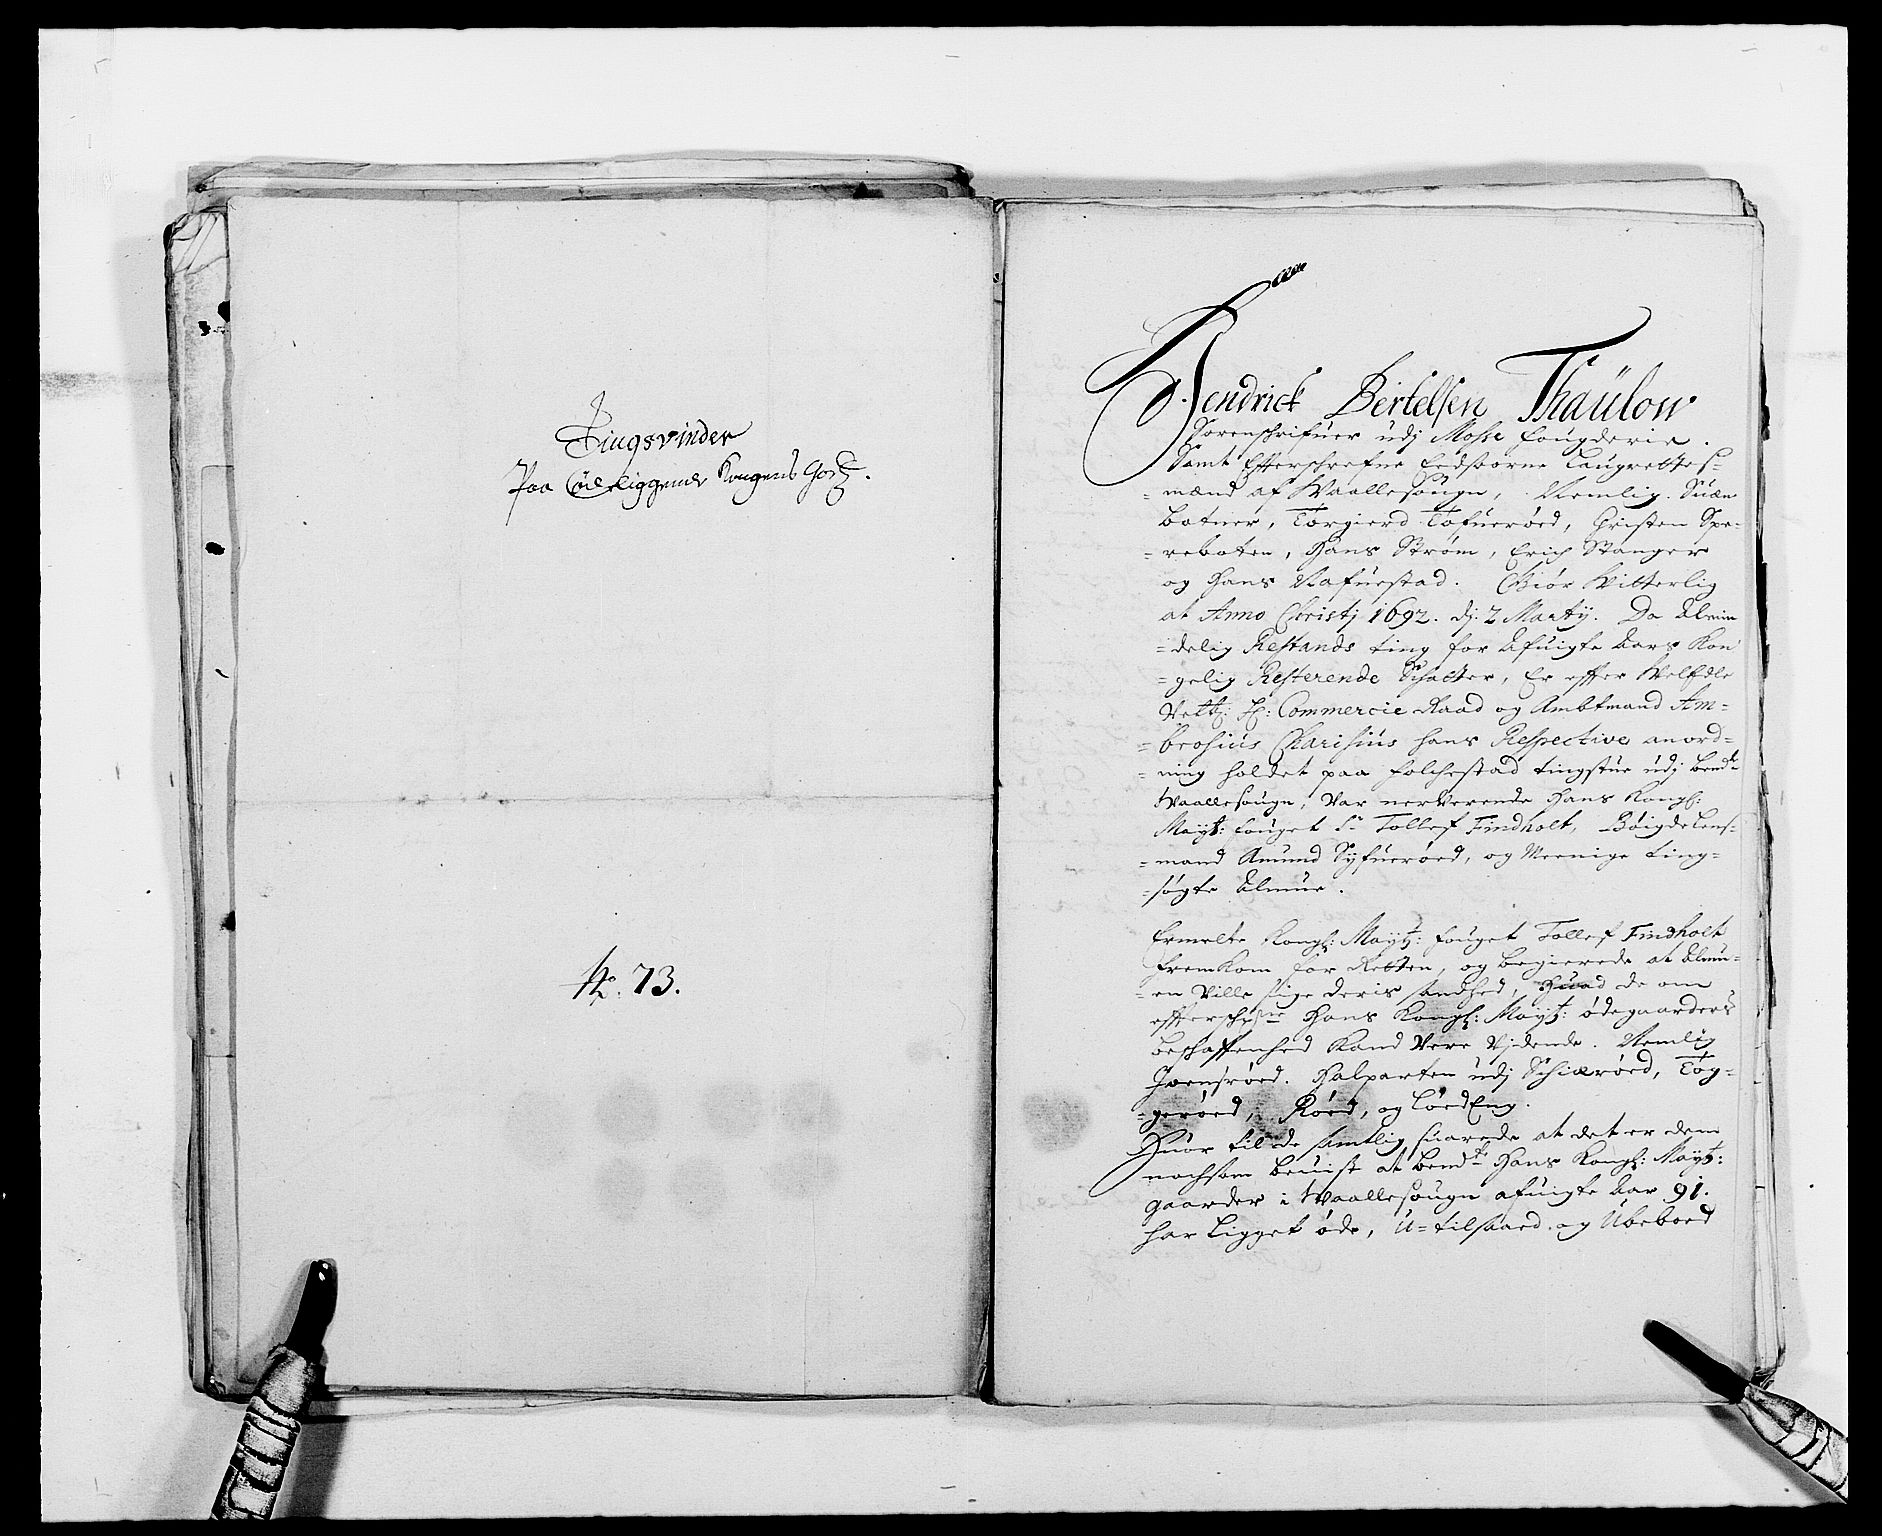 Tingsvinder
Paa Øde liggende Kongens Godtz.
No. 73.
Hendrick Bertelsen Thaulow
Sorenschrifuer udj Mosse fougderie.
Samt Effterschrefne Eedsoorne Laugrettes-
-mænd af Waallesougn, Nemlig. Suæn
botner, Torgierd Tofuerøed, Christen Spe-
-reboten, Hans Strøm, Erich Stanger
og Hans Rafuestad. Giør Witterlig
at Anno Christj 1692. dj. 2 Martij. Da Almin
-delig Restands ting for Afuigte Aars Kon
-gelig Resterende Schatter, Er effter Welædle
Velb: H: Commercie Raad og Ambtmand Am-
-brosius Charisius hans Respective anord-
-ning holdet paa folchestad tingstue udj bemte
Waallesougn, Var nerVerende Hans Kongl:
Mayt: fouget Sr Tollef Findholt, Bøigdelens-
-mand Amund Syfuerøed, og Meenige ting-
-søgte Almue.
Ermelte Kongl: Mayt: fouget Tollef Findholt
fremkom for Retten, og begierede at Almu-
-en Ville sige deris sandhed, Huad de om
effterschrefne Hans Kongl: Mayt: ødegaarders
beschaffenhed Kand Vere Vidende. Nemlig
Joensrøed. Halparten udj Schiærøed, Tog-
-gerøed, Røed, og LøedEng.
Huor til de samtlig suarede at det er dem
nochsom beuist at bemte Hans Kongl: Mayt:
gaarder i Waallesougn afuigte Aar 91.
har Ligget øde, U-tilsaaed og Ubeboed